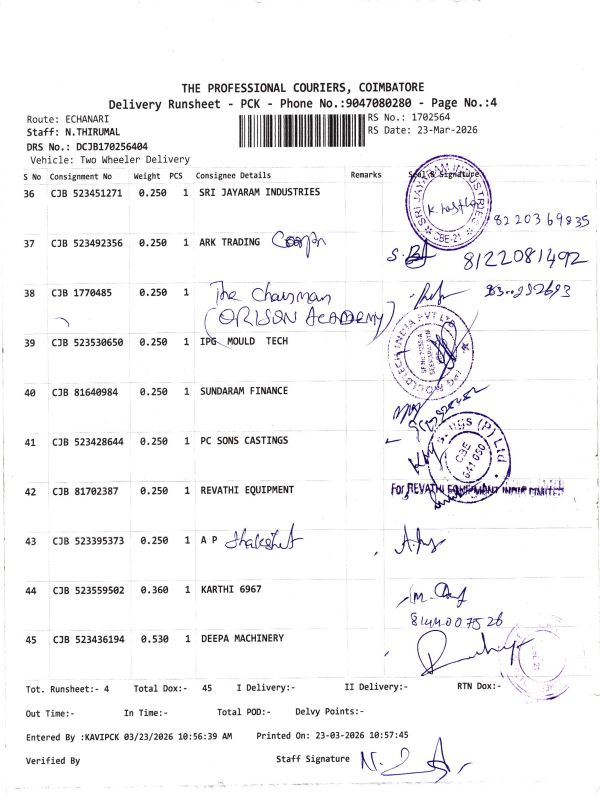 THE PROFESSIONAL COURIERS, COIMBATORE
Delivery Runsheet - PCK - Phone No.:9047080280 - Page No.:4
Route: ECHANARI RS No.: 1702564
Staff: N.THIRUMAL RS Date: 23-Mar-2026
DRS No.: DCJB170256404
Vehicle: Two Wheeler Delivery
S No Consignment No Weight PCS Consignee Details Remarks Seal & Signature
36 CJB 523451271 0.250 1 SRI JAYARAM INDUSTRIES
SRI JAYARAM INDUSTRIES CBE-21
8220369835
37 CJB 523492356 0.250 1 ARK TRADING
8122081492
38 CJB 1770485 0.250 1 The Chairman
(ORISON ACADEMY)
39 CJB 523530650 0.250 1 IPG MOULD TECH
40 CJB 81640984 0.250 1 SUNDARAM FINANCE
41 CJB 523428644 0.250 1 PC SONS CASTINGS
(P) Ltd
CBE
641 050
42 CJB 81702387 0.250 1 REVATHI EQUIPMENT
For REVATHI EQUIPMENT INDIA LIMITED
43 CJB 523395373 0.250 1 A P
44 CJB 523559502 0.360 1 KARTHI 6967
8144007526
45 CJB 523436194 0.530 1 DEEPA MACHINERY
Tot. Runsheet:- 4 Total Dox:- 45 I Delivery:- II Delivery:- RTN Dox:-
Out Time:- In Time:- Total POD:- Delvy Points:-
Entered By :KAVIPCK 03/23/2026 10:56:39 AM Printed On: 23-03-2026 10:57:45
Verified By Staff Signature